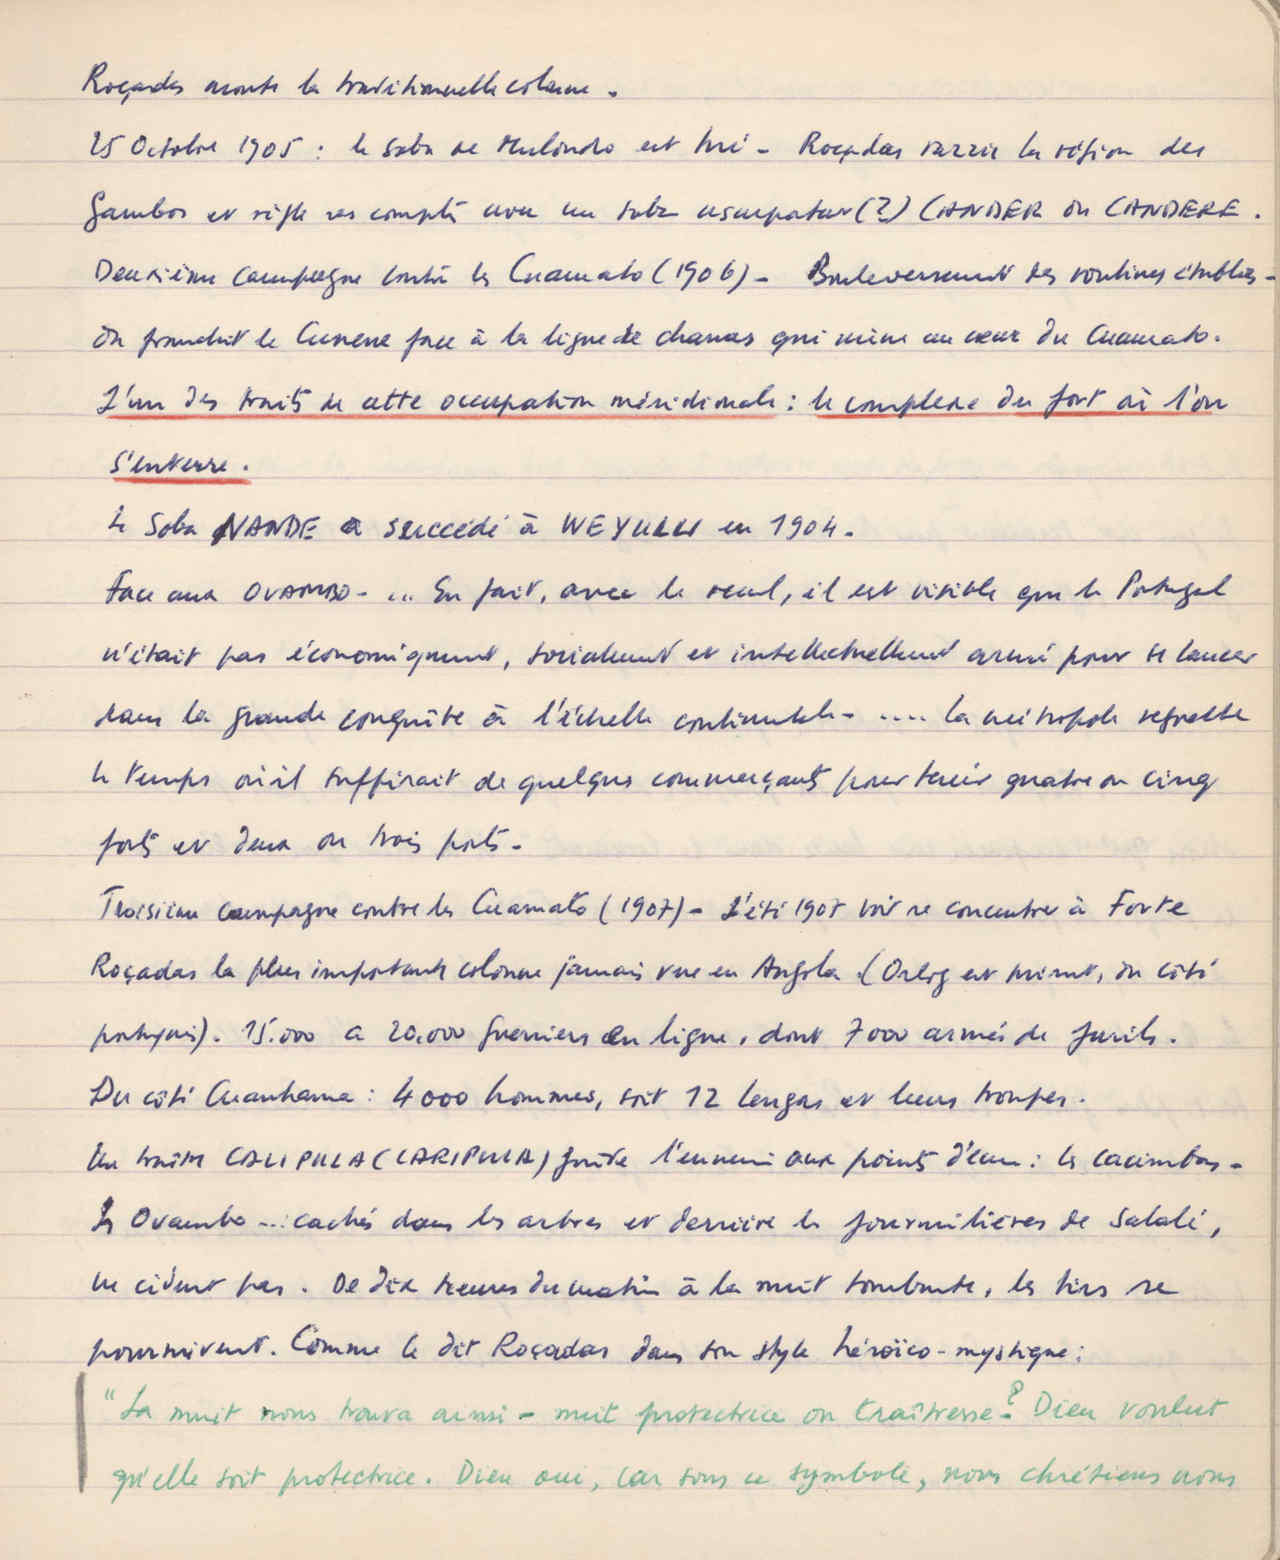 Roçadas monte la traditionnelle colonne.
25 Octobre 1905 : le soba de Mulondo est tué - Roçadas razzie la région des
Gambos et règle ses comptes avec un soba usurpateur (?) CANDER ou CANDERE.
Deuxième campagne contre les Cuamato (1906) - Bouleversement des routines établies -
On franchit le Cunene face à la ligne de chanas qui mène au cœur du Cuamato.
L'un des traits de cette occupation méridionale : le complexe du fort où l'on
s'enterre.
Le Soba NANDE a succédé à WEYULU en 1904.
Face aux OVAMBO - ... En fait, avec le recul, il est visible que le Portugal
n'était pas économiquement, socialement et intellectuellement armé pour se lancer
dans la grande conquête à l'échelle continentale - .... la métropole regrette
le temps où il suffisait de quelques commerçants pour tenir quatre ou cinq
forts et deux ou trois ports -
Troisième campagne contre les Cuamato (1907) - L'été 1907 voit se concentrer à Forte
Roçadas la plus importante colonne jamais vue en Angola. (Orlog est présent, du côté
portugais). 15.000 a 20.000 guerriers en ligne, dont 7000 armés de fusils.
Du côté Cuanhama : 4000 hommes, soit 12 lengas et leurs troupes.
Un traître CALIPULA (CARIPULA) guide l'ennemi aux points d'eau : les cacimbas -
Les Ovambo ... cachés dans les arbres et derrière les fourmilières de Salalé,
ne cèdent pas. De dix heures du matin à la nuit tombante, les tirs se
poursuivent. Comme le dit Roçadas dans son style héroïco-mystique :
"La nuit nous trouva ainsi - nuit protectrice ou traîtresse - ? Dieu voulut
qu'elle soit protectrice. Dieu oui, car sous ce symbole, nous chrétiens nous